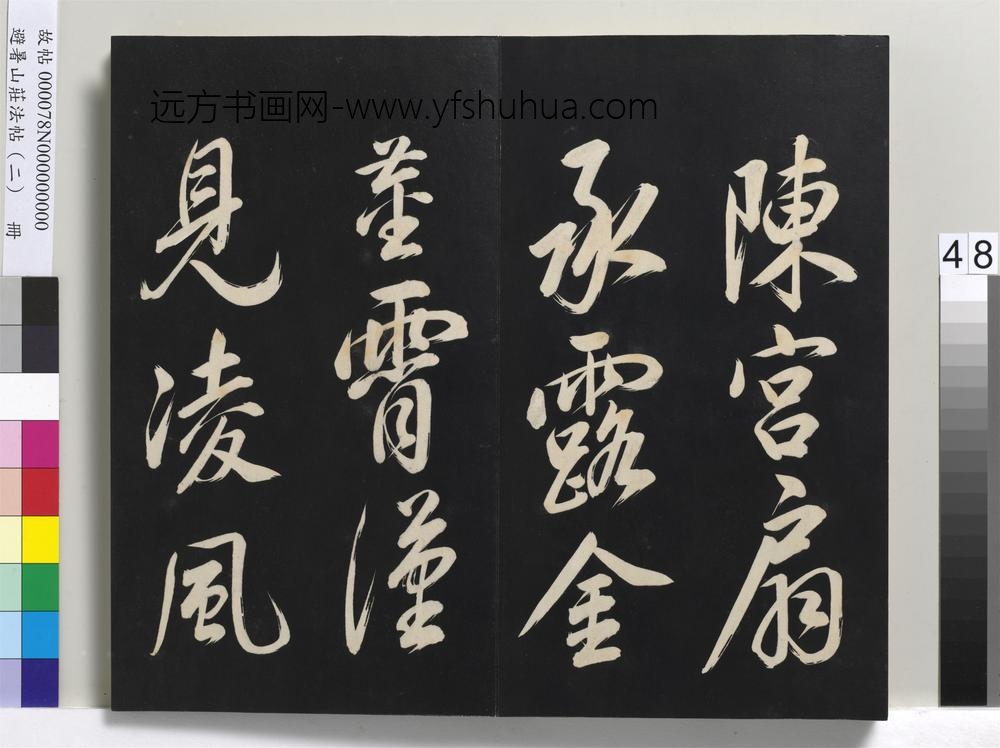 陳宮扇
承露金
莖霄漢
見凌風
远方书画网-www.yfshuhua.com
故帖 000078N000000000
避暑山莊法帖（二） 冊
48